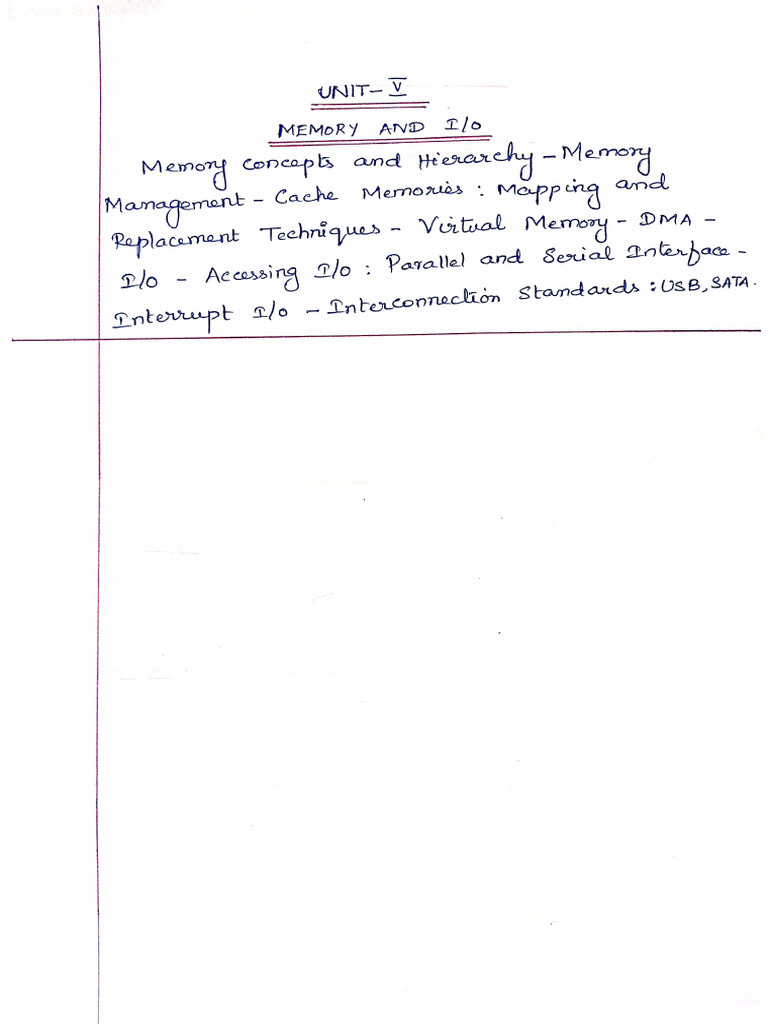 UNIT-V
MEMORY AND I/O
Memory concepts and Hierarchy - Memory
Management - Cache Memories: Mapping and
Replacement Techniques - Virtual Memory - DMA -
I/O - Accessing I/O: Parallel and Serial Interface -
Interrupt I/O - Interconnection Standards: USB, SATA.